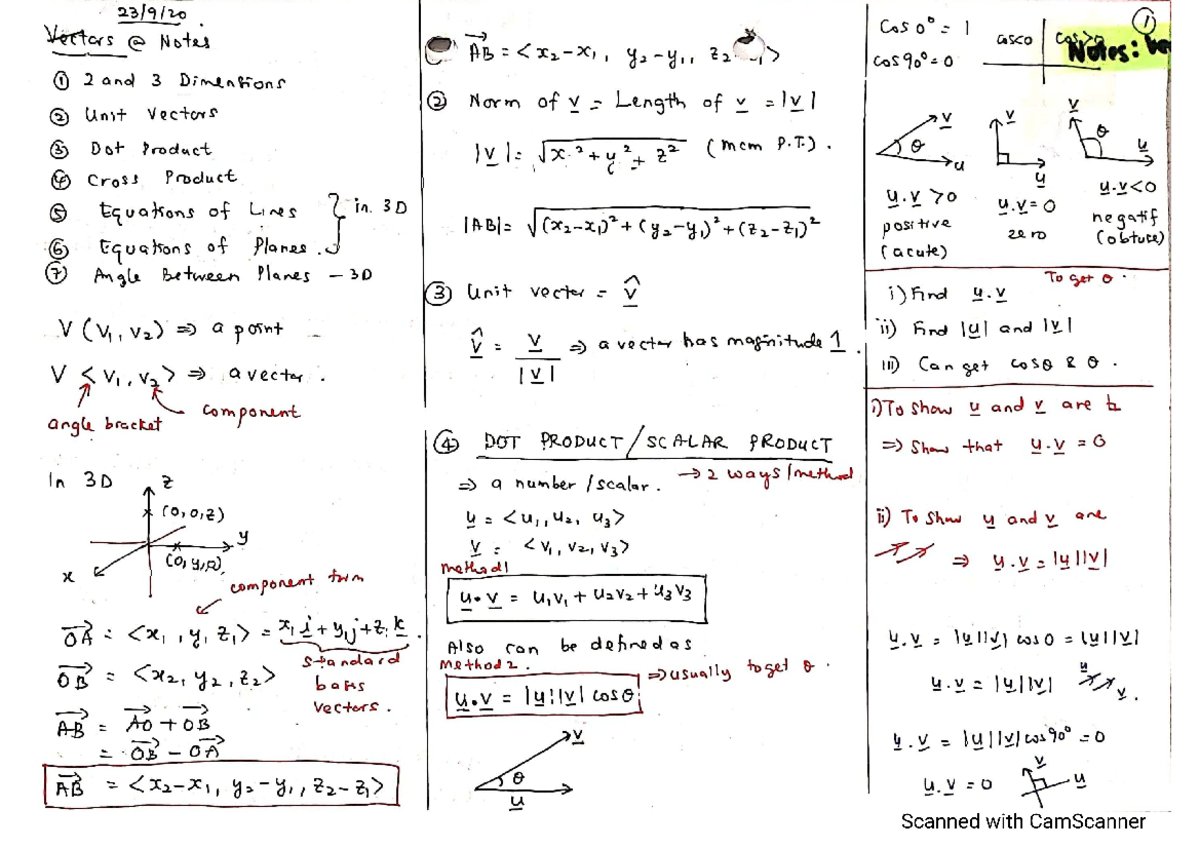 23/9/20
Vectors @ Notes
① 2 and 3 Dimensions
② Unit Vectors
③ Dot Product
④ Cross Product
⑤ Equations of Lines } in 3D
⑥ Equations of Planes.
⑦ Angle Between Planes – 3D
V (v₁, v₂) ⇒ a point
V < v₁, v₂ > ⇒ a vector.
angle bracket
component
In 3D
z
(0,0,z)
y
(0,y,0)
x
component form
OA = <x₁, y₁ z₁> = x₁ i + y₁ j + z₁ k.
OB = <x₂, y₂, z₂>
standard
basis
vectors.
AB = AO + OB
= OB – OA
AB = <x₂-x₁, y₂-y₁, z₂-z₁>
AB = <x₂-x₁, y₂-y₁, z₂
② Norm of v = Length of v = |v|
|v| = √x² + y² + z² (mcm P.T.).
|AB| = √(x₂-x₁)² + (y₂-y₁)² + (z₂-z₁)²
③ Unit vector = v̂
v̂ = v / |v| ⇒ a vector has magnitude 1.
④ DOT PRODUCT / SCALAR PRODUCT
⇒ a number / scalar. → 2 ways/method
u = <u₁, u₂, u₃>
v = <v₁, v₂, v₃>
method 1
u • v = u₁v₁ + u₂v₂ + u₃v₃
Also can be defined as
method 2. ⇒ usually to get θ.
u • v = |u||v| cos θ
v
θ
u
①
cos 0° = 1
cos 90° = 0
cos<0
cos>0
Notes:
v
θ
u
v
u
v
θ
u
u.v > 0
positive
(acute)
u.v = 0
zero
u.v < 0
negatif
(obtuce)
To get θ.
i) Find u.v
ii) Find |u| and |v|
iii) Can get cos θ & θ.
i) To show u and v are ⊥
⇒ Show that u.v = 0
ii) To show u and v are
⇒ u.v = |u||v|
u.v = |u||v| cos 0 = |u||v|
u.v = |u||v|
u
v.
u.v = |u||v| cos 90° = 0
u.v = 0
v
u
Scanned with CamScanner